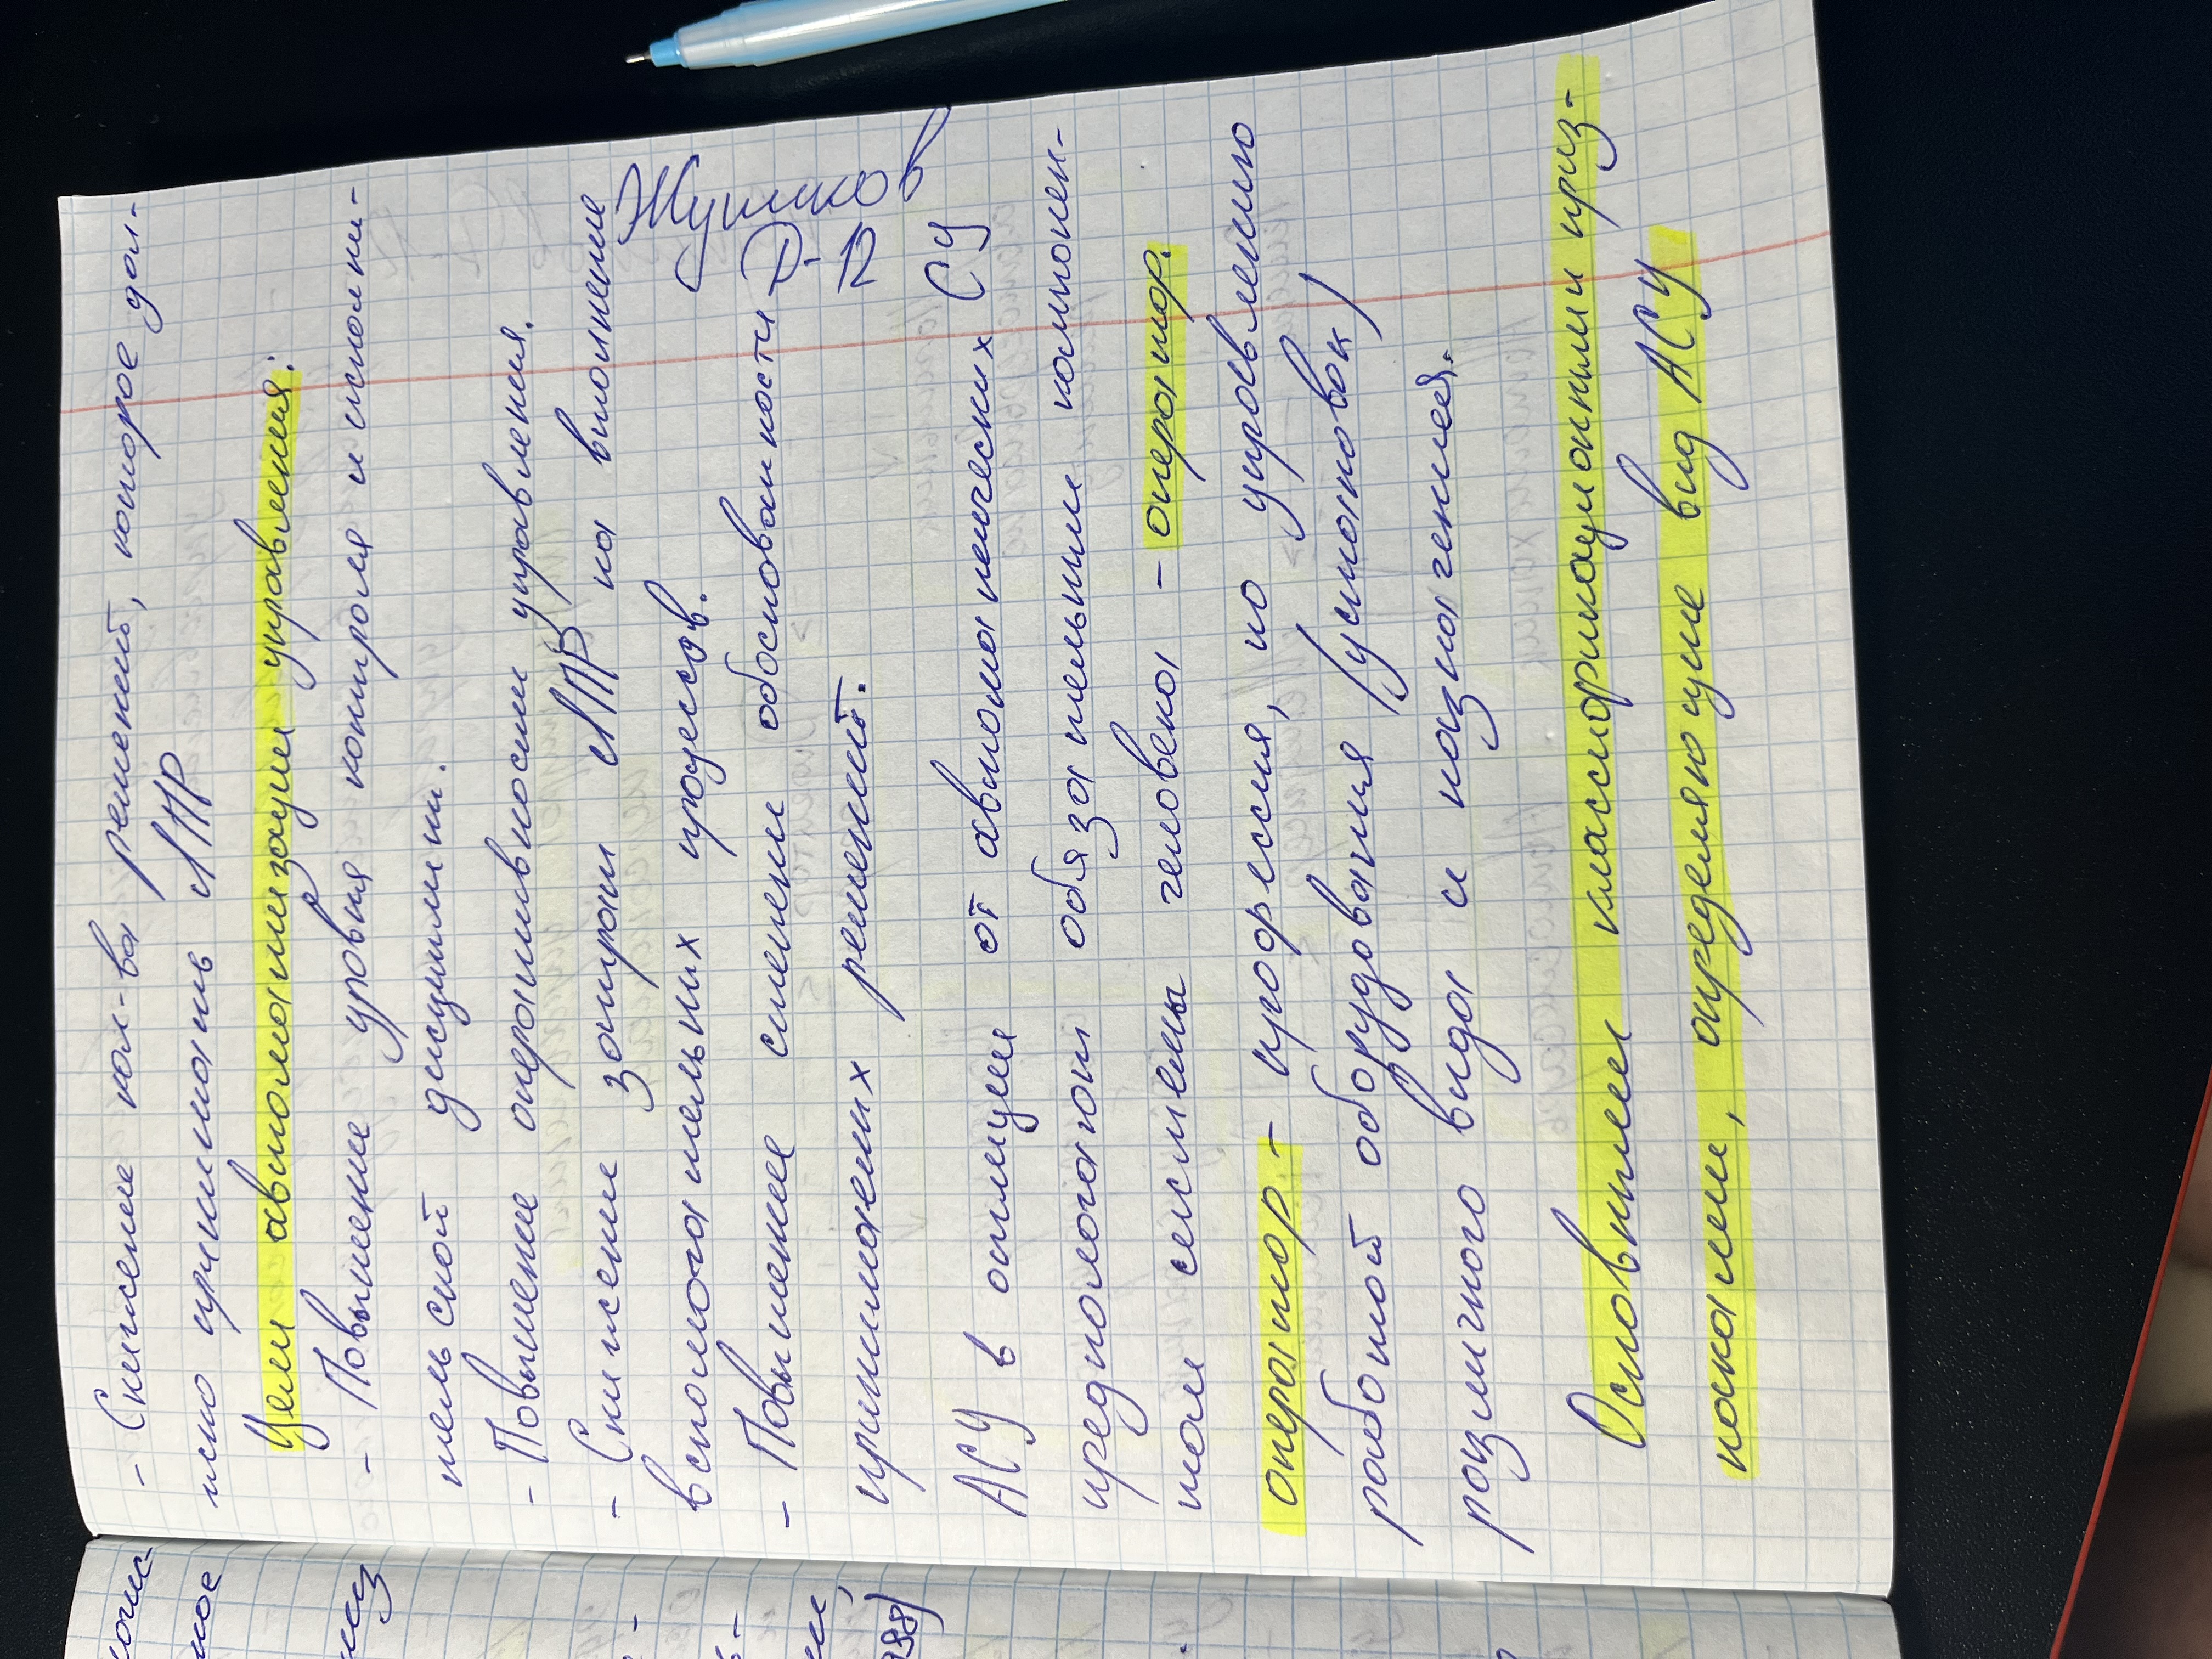 - Снижение кол-ва решений, которое дол-
жно принимать ЛПР
Цели автоматизации управления:
- Повышение уровня контроля и исполни-
тельской дисциплины.
- Повышение оперативности управления.
- Снижение затрат ЛПР на выполнение
вспомогательных процесов.
- Повышение степени обоснованности
принимаемых решений.
АСУ в отличие от автоматических СУ
предполагают обязательный компонен-
том системы человека - оператор.
оператор - профессия, по управлению
работой оборудования (установок)
различного вида и назначения.
Основными классификационными приз-
наками, определяющие вид АСУ